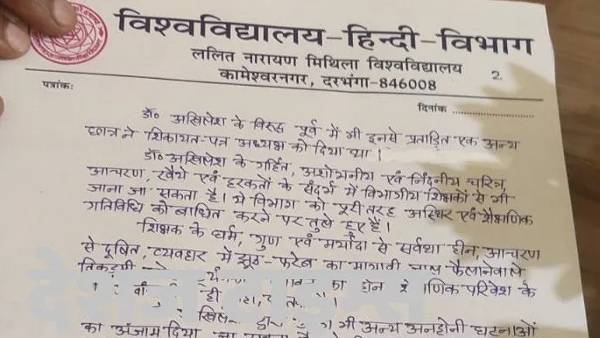 विश्वविद्यालय-हिन्दी-विभाग
ललित नारायण मिथिला विश्वविद्यालय
कामेश्वरनगर, दरभंगा-846008
2
पत्रांक:
दिनांक
डॉ० अखिलेश के विरुद्ध पूर्व में भी इनसे प्रताड़ित एक अन्य
छात्र ने शिकायत-पत्र अध्यक्ष को दिया था।
डॉ० अखिलेश के गर्हित, अशोभनीय एवं निंदनीय चरित्र,
आचरण, रवैये एवं हरकतों के संदर्भ में विभागीय शिक्षकों से भी
जाना जा सकता है। ये विभाग को पूरी तरह अस्थिर एवं शैक्षणिक
गतिविधि को बाधित करने पर तुले हुए हैं।
शिक्षक के धर्म, गुण एवं मर्यादा से सर्वथा हीन, आचरण
से दूषित, व्यवहार में झूठ-फरेब का मायावी जाल फैलानेवाले
तिकड़मी
परिवेश के
भी अन्य अनहोनी घटनाओं
का अंजाम दिया